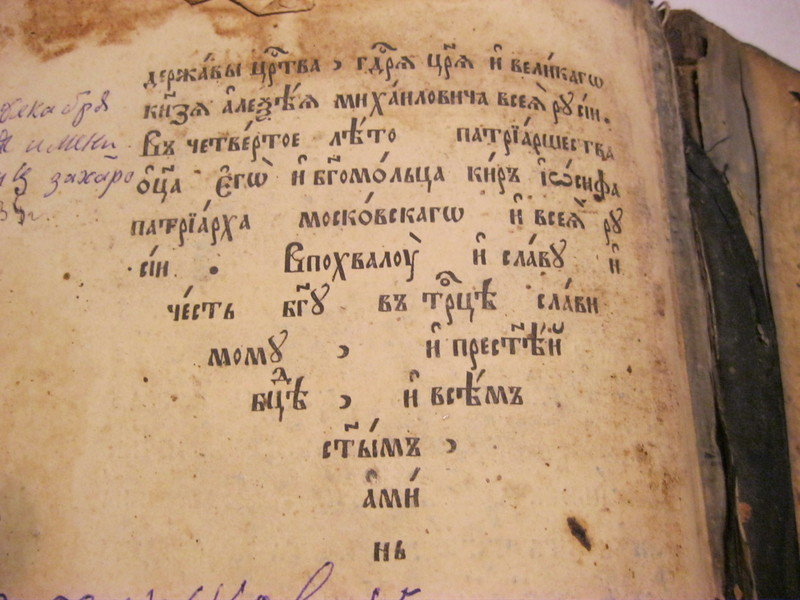 держа́вы црⷭ҇тва , гдⷭ҇рѧ црѧ̀ и҆ вели́кагѡ
кн҃зѧ а҆леѯѣ́ѧ миха́иловича всеѧ̀ рꙋсі́и.
Въ четве́ртое лѣ́то патрїа́ршества
ѻ҆ц҃а є҆гѡ̀ и҆ бг҃омо́льца ки́ръ і҆ѡ́сифа
патрїа́рха моско́вскагѡ и҆ всеѧ̀ рꙋ
сі́и . Впохвалоу̀ и҆ сла́вꙋ и҆
че́сть бг҃ꙋ въ трⷪ҇цѣ сла́ви
момꙋ , и҆ прест҃ѣ́й
бцⷣѣ , и҆ всѣ́мъ
ст҃ы́мъ ,
а҆ми́
нь
декабря
имени
захаро